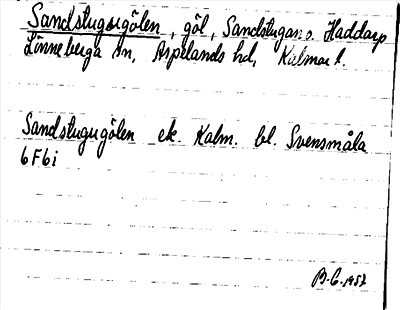 Sandstugugölen, göl, Sandstugan o. Haddarp
Linneberga sn, Aspelands hd, Kalmar l.
Sandstugugölen ek. Kalm. bl. Svensmåla
6F6i
B.G. 1957